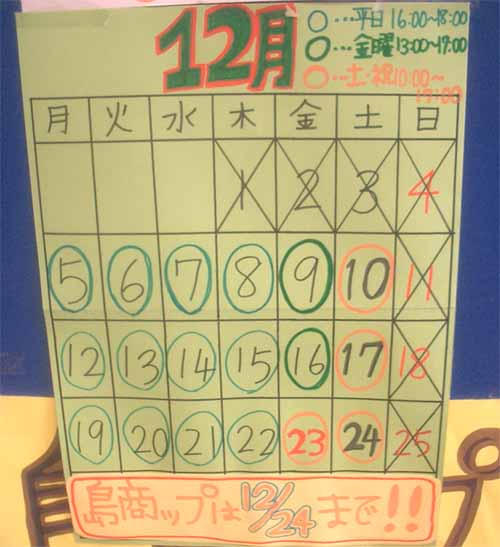 12月
○…平日16:00~18:00
○…金曜13:00~17:00
○…土・祝10:00~17:00
月 火 水 木 金 土 日
1 2 3 4
5 6 7 8 9 10 11
12 13 14 15 16 17 18
19 20 21 22 23 24 25
島商ップは12/24まで!!